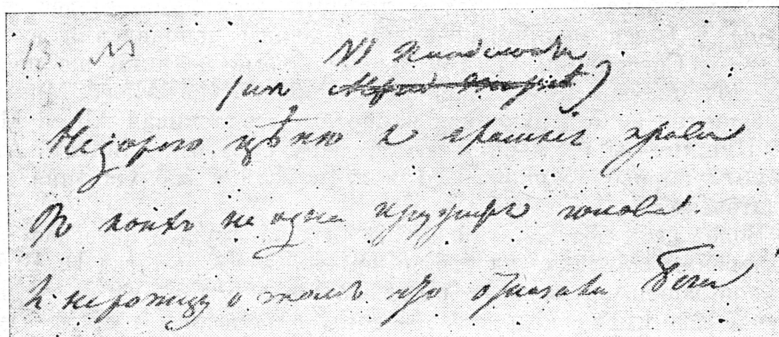 13.
Изъ
(изъ
Недорого цѣню я громкія права
Отъ коихъ не одна кружится голова.
Я не ропщу о томъ что отказали боги